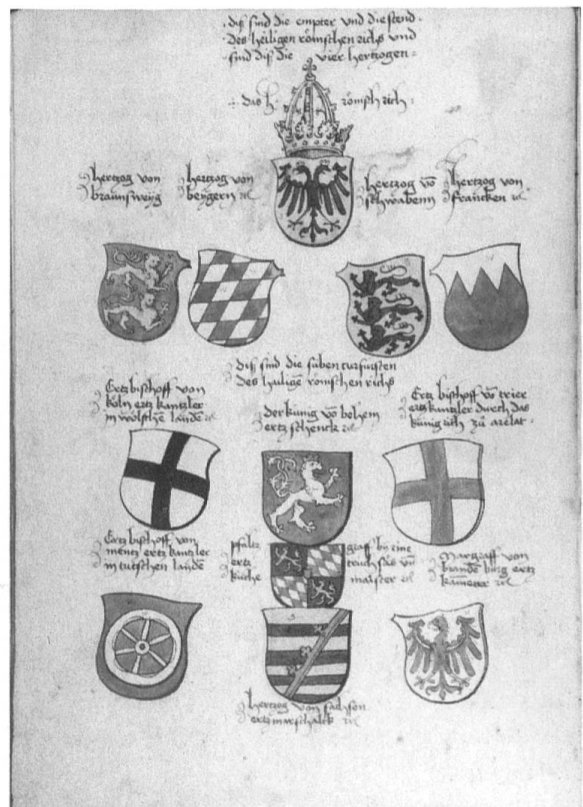 diß sind die empter und die stend
des heiligen römschen richs und
sind diß die vier hertzogen
das h. römsch rich
hertzog von
braunsweyg
hertzog von
beyern
hertzog vō
schwabenn
hertzog von
francken
diß sind die süben curfursten
des hailigē römschen richs
Ertz bischoff von
köln ertz kantzler
in wölschē landē
der künig vō behem
ertz schenck
Ertz bischoff vō trier
ertz kantzler durch das
künigrich zů arelat
Ertz bischoff von
mentz ertz kantzler
in tutschen landē
pfaltz graff by rine
ertz truchsäs vn̄
kuche maister
Margraff von
brandēburg ertz
kamerer
hertzog von sachson
ertz marschalck